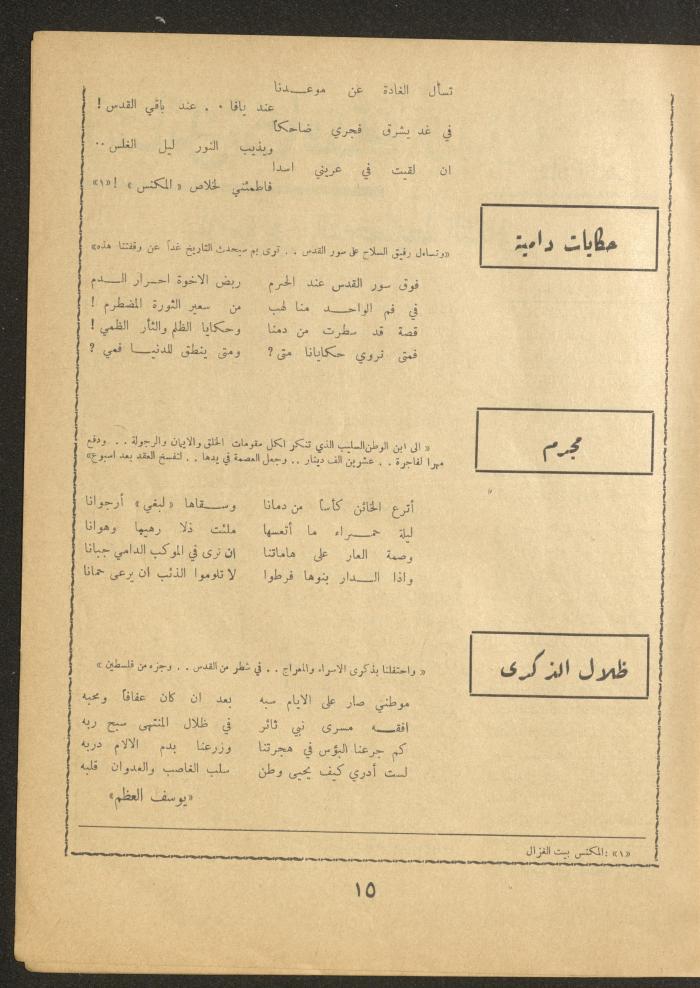 تسأل الغادة عن موعدنا
عند يافا . . عند باقي القدس !
في غد يشرق فجري ضاحكاً
ويذيب النور ليل الغلس ..
ان لقيت في عريني اسدا
فاطمئني لخلاص « المكنس » ! «١»
حكايات دامية
«وتساءل رفيق السلاح على سور القدس . . ترى بم سيحدث التاريخ غداً عن وقفتنا هذه»
فوق سور القدس عند الحرم ربض الاخوة احرار الدم
في فم الواحد منا لهب من سعير الثورة المضطرم !
قصة قد سطرت من دمنا وحكايا الظلم والثأر الظمي !
فمتى تروي حكايانا متى ؟ ومتى ينطق للدنيا فمي ?
مجرم
« الى ابن الوطن السليب الذي تنكر لكل مقومات الخلق والايمان والرجولة . . ودفع
مهرا لفاجرة . . عشرين الف دينار .. وجعل العصمة في يدها . . لتفسخ العقد بعد اسبوع»
أترع الخائن كأساً من دمانا وسقاها « لبغي » أرجوانا
ليلة حمراء ما أتعسها ملئت ذلا رهيبا وهوانا
وصمة العار على هاماتنا ان نرى في الموكب الدامي جبانا
واذا الدار بنوها فرطوا لا تلوموا الذئب ان يرعى حمانا
ظلال الذكرى
« واحتفلنا بذكرى الاسراء والمعراج . . في شطر من القدس . . وجزء من فلسطين »
موطني صار على الايام سبه بعد ان كان عفافاً ومحبه
افقه مسرى نبي ثائر في ظلال المنتهى سبح ربه
كم جرعنا البؤس في هجرتنا وزرعنا بدم الالام دربه
لست أدري كيف يحيى وطن سلب الغاصب والعدوان قلبه
«يوسف العظم»
«١» : المكنس بيت الغزال
١٥